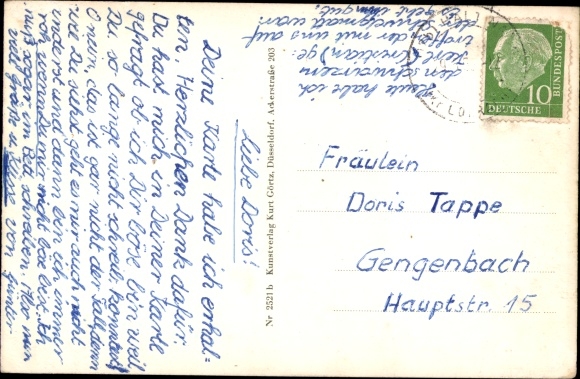 Liebe Doris!
Deine Karte habe ich erhal-
ten, Herzlichen Dank dafür.
Du hast mich in Deiner Karte
gefragt ob ich Dir böse bin weil
Du so lange nicht schreib konntest
O nein, das ist gar nicht der Fall, denn
wie Du siehst geht es mir auch nicht
anderst und dann bin ich immer
froh wenn Du mir nicht böse bist. Ich
muß sogar im Bett schreiben. Hier nun
viele Grüße u. Küsse von Günter
Heute habe ich
den schwarzen
Karl (Christian) ge-
troffen der mit uns auf
der Schwegmatt war.
Es geht ihm gut.
Nr 2521 b Kunstverlag Kurt Görtz, Düsseldorf, Ackerstraße 203
10
DEUTSCHE
BUNDESPOST
Fräulein
Doris Tappe
Gengenbach
Hauptstr. 15